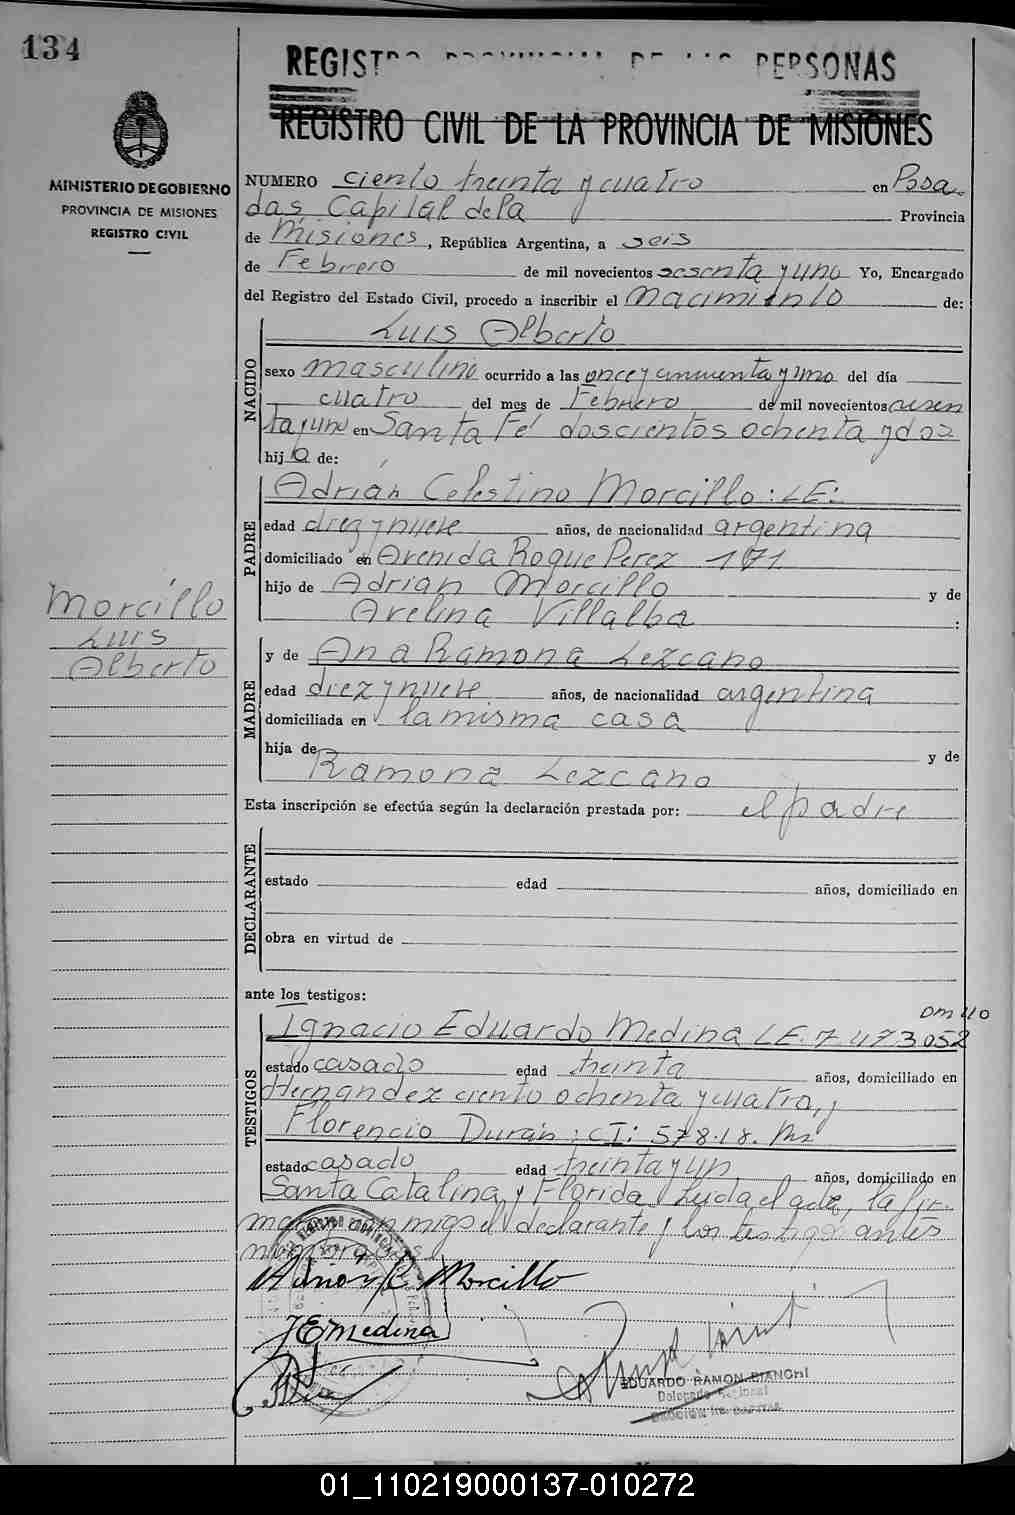 134
REGISTRO PROVINCIAL DE LAS PERSONAS
REGISTRO CIVIL DE LA PROVINCIA DE MISIONES
MINISTERIO DE GOBIERNO
PROVINCIA DE MISIONES
REGISTRO CIVIL
NUMERO ciento treinta y cuatro en Posa-
das Capital de la Provincia
de Misiones, República Argentina, a seis
de Febrero de mil novecientos sesenta y uno Yo, Encargado
del Registro del Estado Civil, procedo a inscribir el Nacimiento de:
NACIDO
Luis Alberto
sexo masculino ocurrido a las once y cincuenta y uno del día
cuatro del mes de Febrero de mil novecientos sesen
ta y uno en Santa Fé doscientos ochenta y dos
hijo de:
PADRE
Adrián Celestino Morcillo: LE:
edad diez y nueve años, de nacionalidad argentina
domiciliado en Avenida Roque Perez 171
hijo de Adrian Morcillo y de
Avelina Villalba :
Morcillo
Luis
Alberto
MADRE
y de Ana Ramona Lezcano
edad diez y nueve años, de nacionalidad argentina
domiciliada en la misma casa
hija de y de
Ramona Lezcano
Esta inscripción se efectúa según la declaración prestada por: el padre
DECLARANTE
estado edad años, domiciliado en
obra en virtud de
ante los testigos:
TESTIGOS
DM 110
Ignacio Eduardo Medina LE. 7.473052
estado casado edad treinta años, domiciliado en
Hernandez ciento ochenta y cuatro, y
Florencio Durán: CI: 57818.
estado casado edad treinta y un años, domiciliado en
Santa Catalina y Florida. Leida el acta, la fir-
man conmigo el declarante y los testigos antes
Adrian C. Morcillo
JEMedina
EDUARDO RAMON BIANCHI
01_110219000137-010272